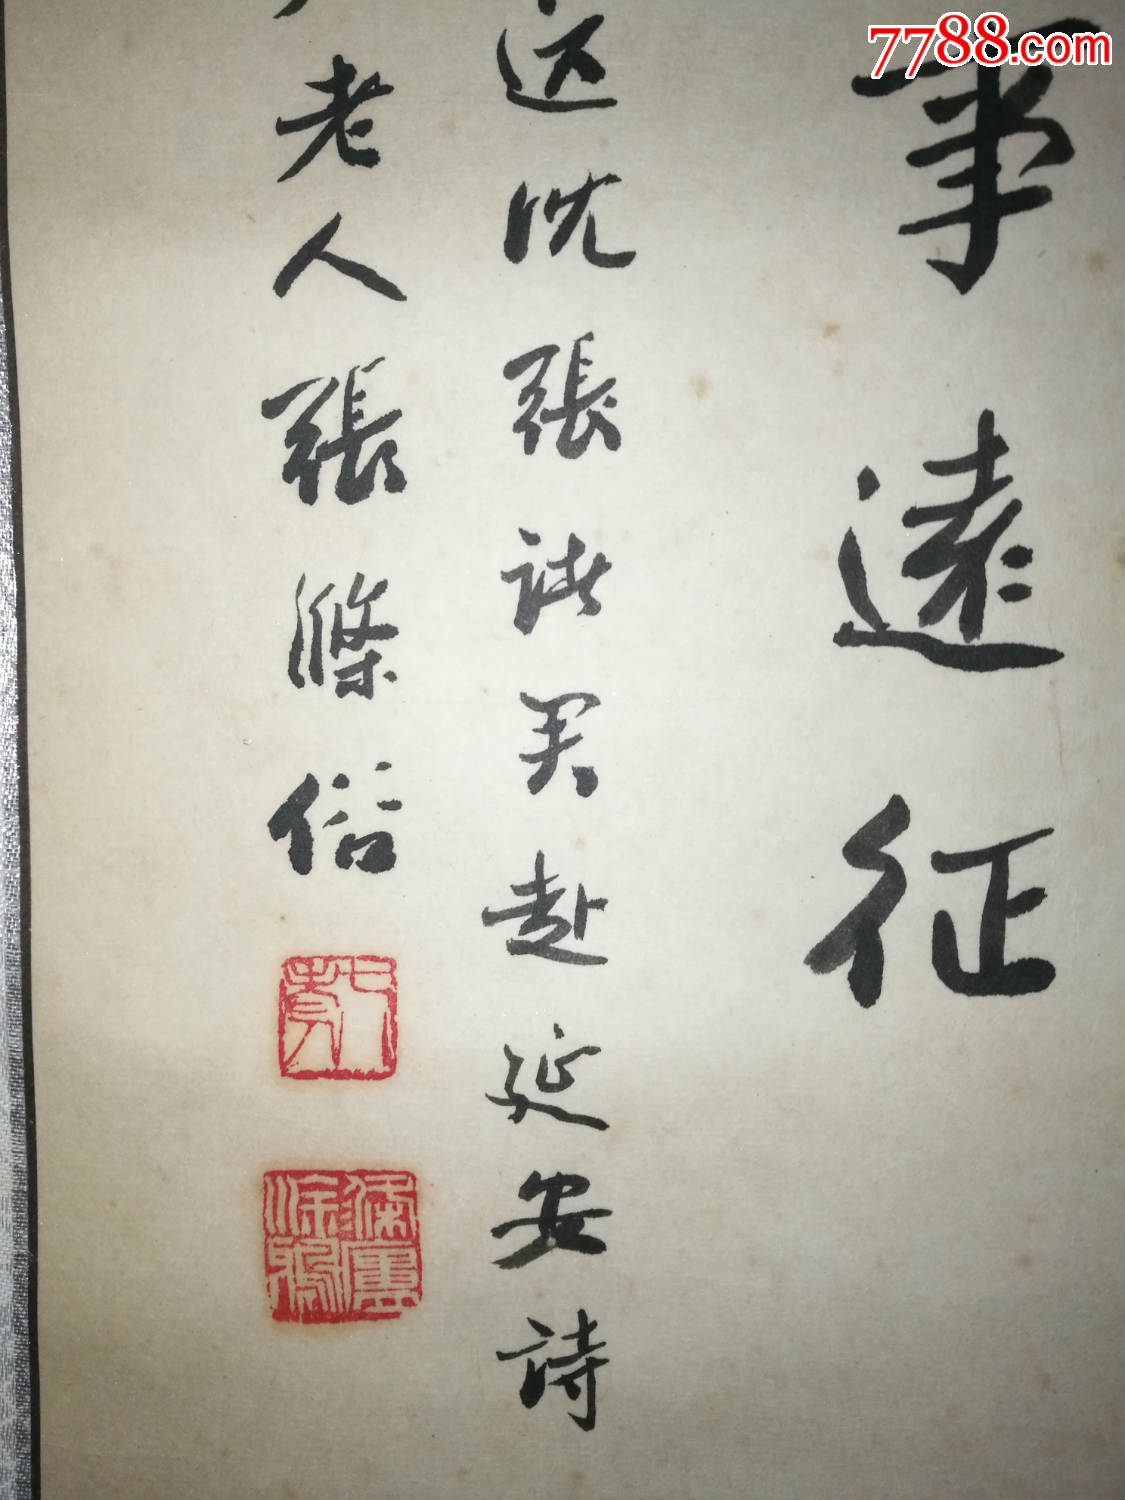 7788.com
事遠征
送沈張諸君赴延安詩
老人張滌俗